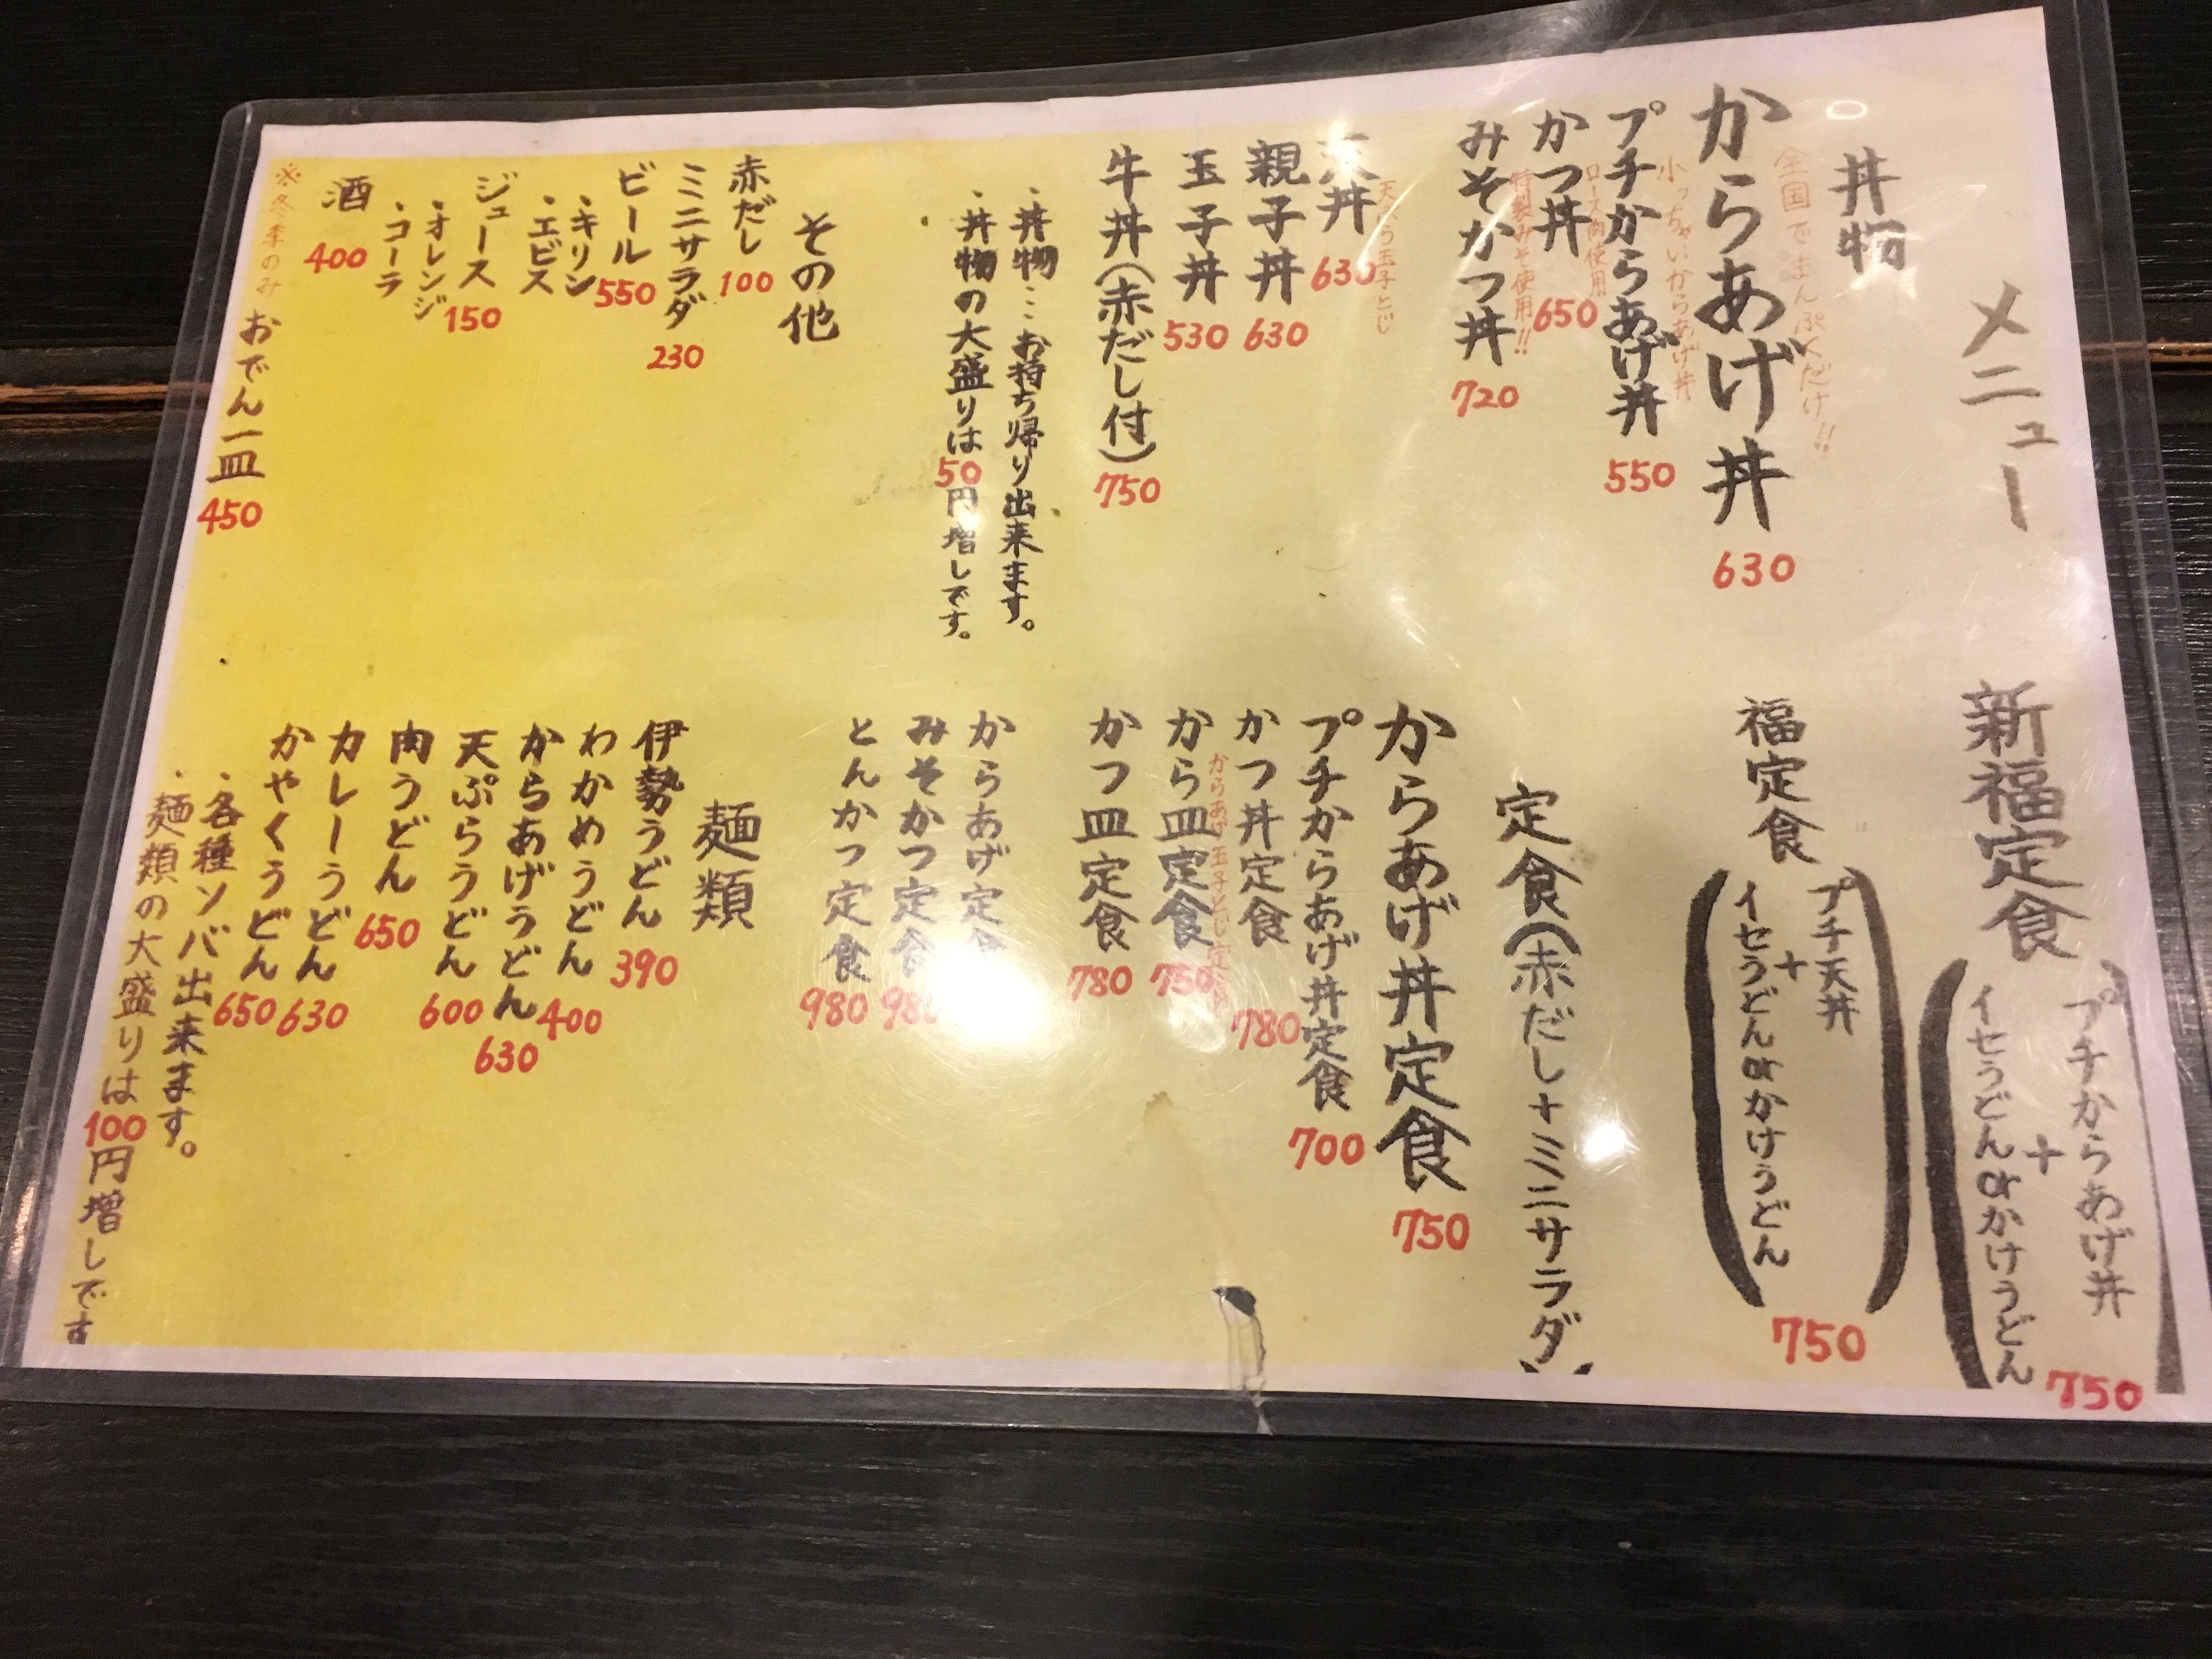 メニュー
丼物
全国でまんぷくだけ!!
からあげ丼 630
小っちゃいからあげ丼
プチからあげ丼 550
ロース肉使用
かつ丼 650
特製みそ使用!!
みそかつ丼 720
天ぷら玉子とじ
天丼 630
親子丼 630
玉子丼 530
牛丼(赤だし付) 750
・丼物…お持ち帰り出来ます。
・丼物の大盛りは50円増しです。
その他
赤だし 100
ミニサラダ 230
ビール 550
・キリン
・エビス
ジュース 150
・オレンジ
・コーラ
酒 400
※冬季のみ おでん一皿 450
新福定食
(プチからあげ丼
+
イセうどんorかけうどん) 750
福定食
(プチ天丼
+
イセうどんorかけうどん) 750
定食(赤だし+ミニサラダ)
からあげ丼定食 750
プチからあげ丼定食 700
かつ丼定食 780
からあげ玉子とじ定食
から皿定食 750
かつ皿定食 780
からあげ定食
みそかつ定食
とんかつ定食 980
麺類
伊勢うどん 390
わかめうどん 400
からあげうどん 630
天ぷらうどん 600
肉うどん 650
カレーうどん 630
かやくうどん 650
・各種ソバ出来ます。
・麺類の大盛りは100円増しです